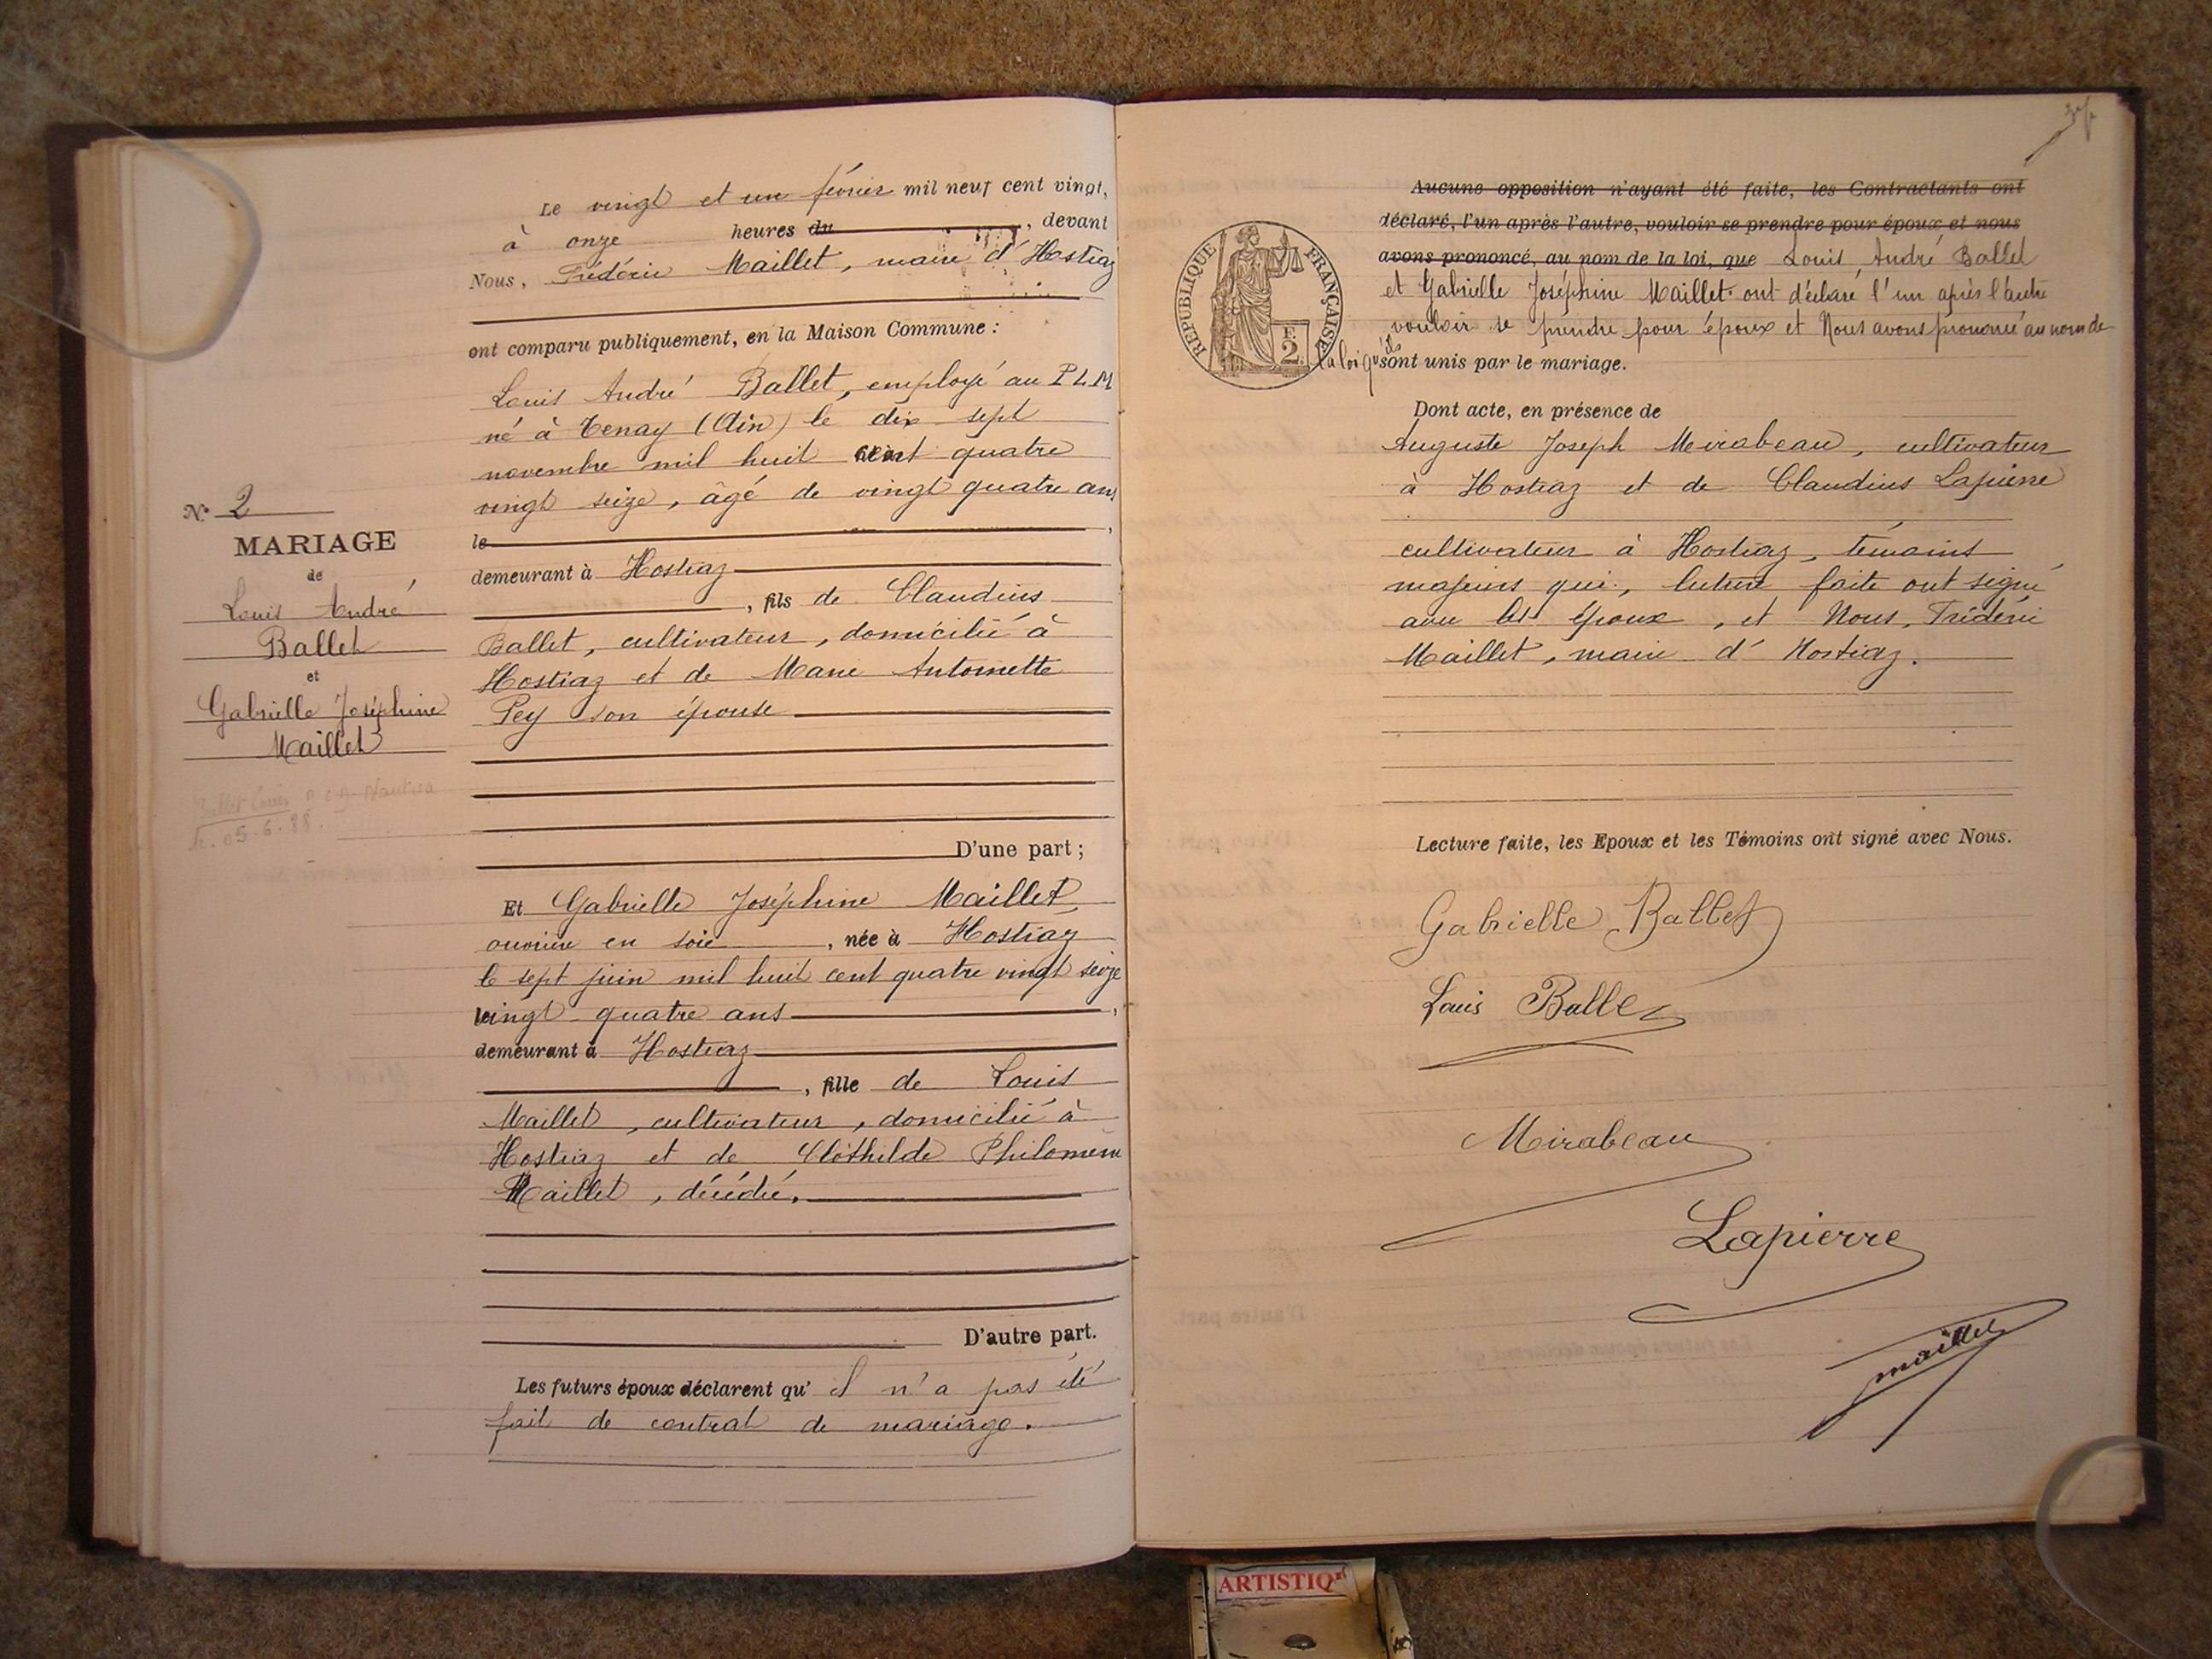 N° 2
MARIAGE
de
Louis André
Ballet
et
Gabrielle Joséphine
Maillet
Le vingt et un février mil neuf cent vingt,
à onze heures du , devant
Nous, Frédéric Maillet, maire d'Hostiaz
ont comparu publiquement, en la Maison Commune :
Louis André Ballet, employé au PLM
né à Tenay (Ain) le dix sept
novembre mil huit cent quatre
vingt seize, âgé de vingt quatre ans
le ,
demeurant à Hostiaz
, fils de Claudius
Ballet, cultivateur, domicilié à
Hostiaz et de Marie Antoinette
Pey son épouse
D'une part ;
Et Gabrielle Joséphine Maillet,
ouvrière en soie , née à Hostiaz
le sept juin mil huit cent quatre vingt seize
vingt quatre ans ,
demeurant à Hostiaz
, fille de Louis
Maillet, cultivateur, domicilié à
Hostiaz et de Clothilde Philomène
Maillet, décédée.
D'autre part.
Les futurs époux déclarent qu'il n'a pas été
fait de contrat de mariage.
REPUBLIQUE FRANÇAISE
F.
2
Aucune opposition n'ayant été faite, les Contractants ont
déclaré, l'un après l'autre, vouloir se prendre pour époux et nous
avons prononcé, au nom de la loi, que Louis André Ballet
et Gabrielle Joséphine Maillet ont déclaré l'un après l'autre
vouloir se prendre pour époux et Nous avons prononcé au nom de
la loi qu'ils sont unis par le mariage.
Dont acte, en présence de
Auguste Joseph Mirabeau, cultivateur
à Hostiaz et de Claudius Lapierre
cultivateur à Hostiaz, témoins
majeurs qui, lecture faite ont signé
avec les époux, et Nous, Frédéric
Maillet, maire d'Hostiaz.
Lecture faite, les Epoux et les Témoins ont signé avec Nous.
Gabrielle Ballet
Louis Ballet
Mirabeau
Lapierre
Maillet
ARTISTIQ